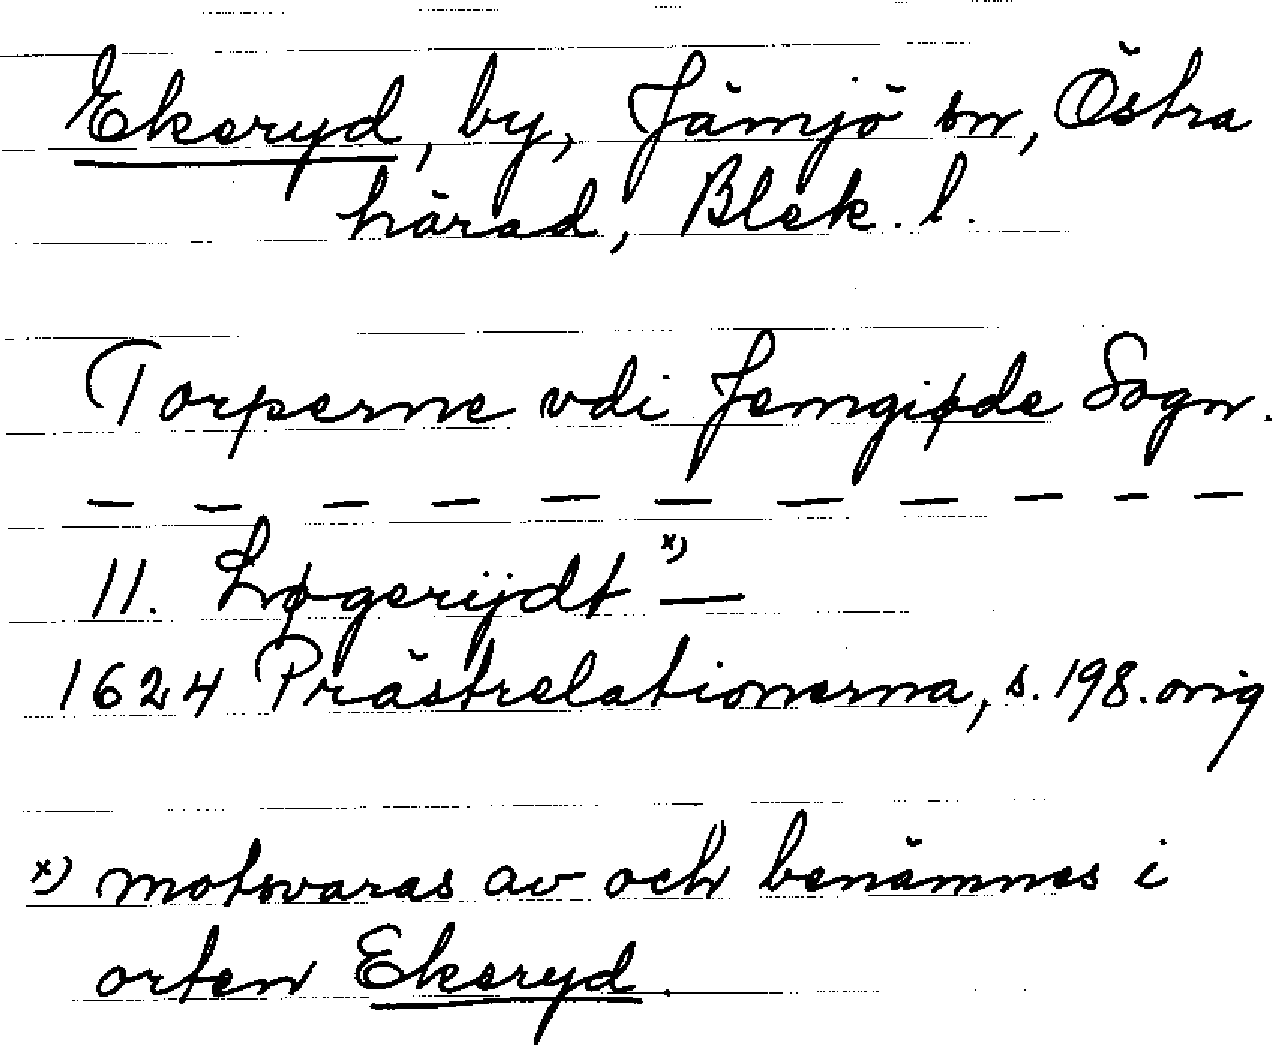 Ekeryd, by, Jämjö sn, Östra
härad, Blek. l.
Torperne vdi Jemgiøde Sogn.
— — — — — — — — — — —
11. Løgerijdt x) —
1624 Prästrelationerna, s. 198. orig
x) motsvaras av och benämnes i
orten Ekeryd.